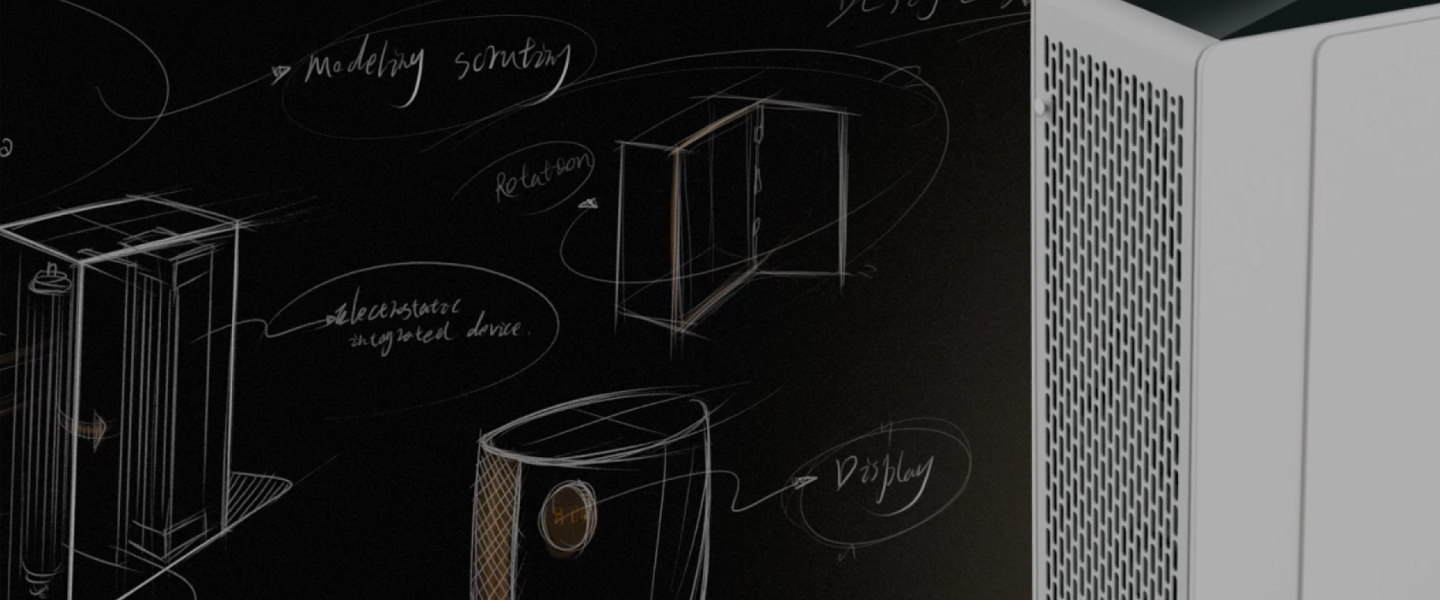 modeling scrutiny
Rotation
electrostatic
integrated device.
Display